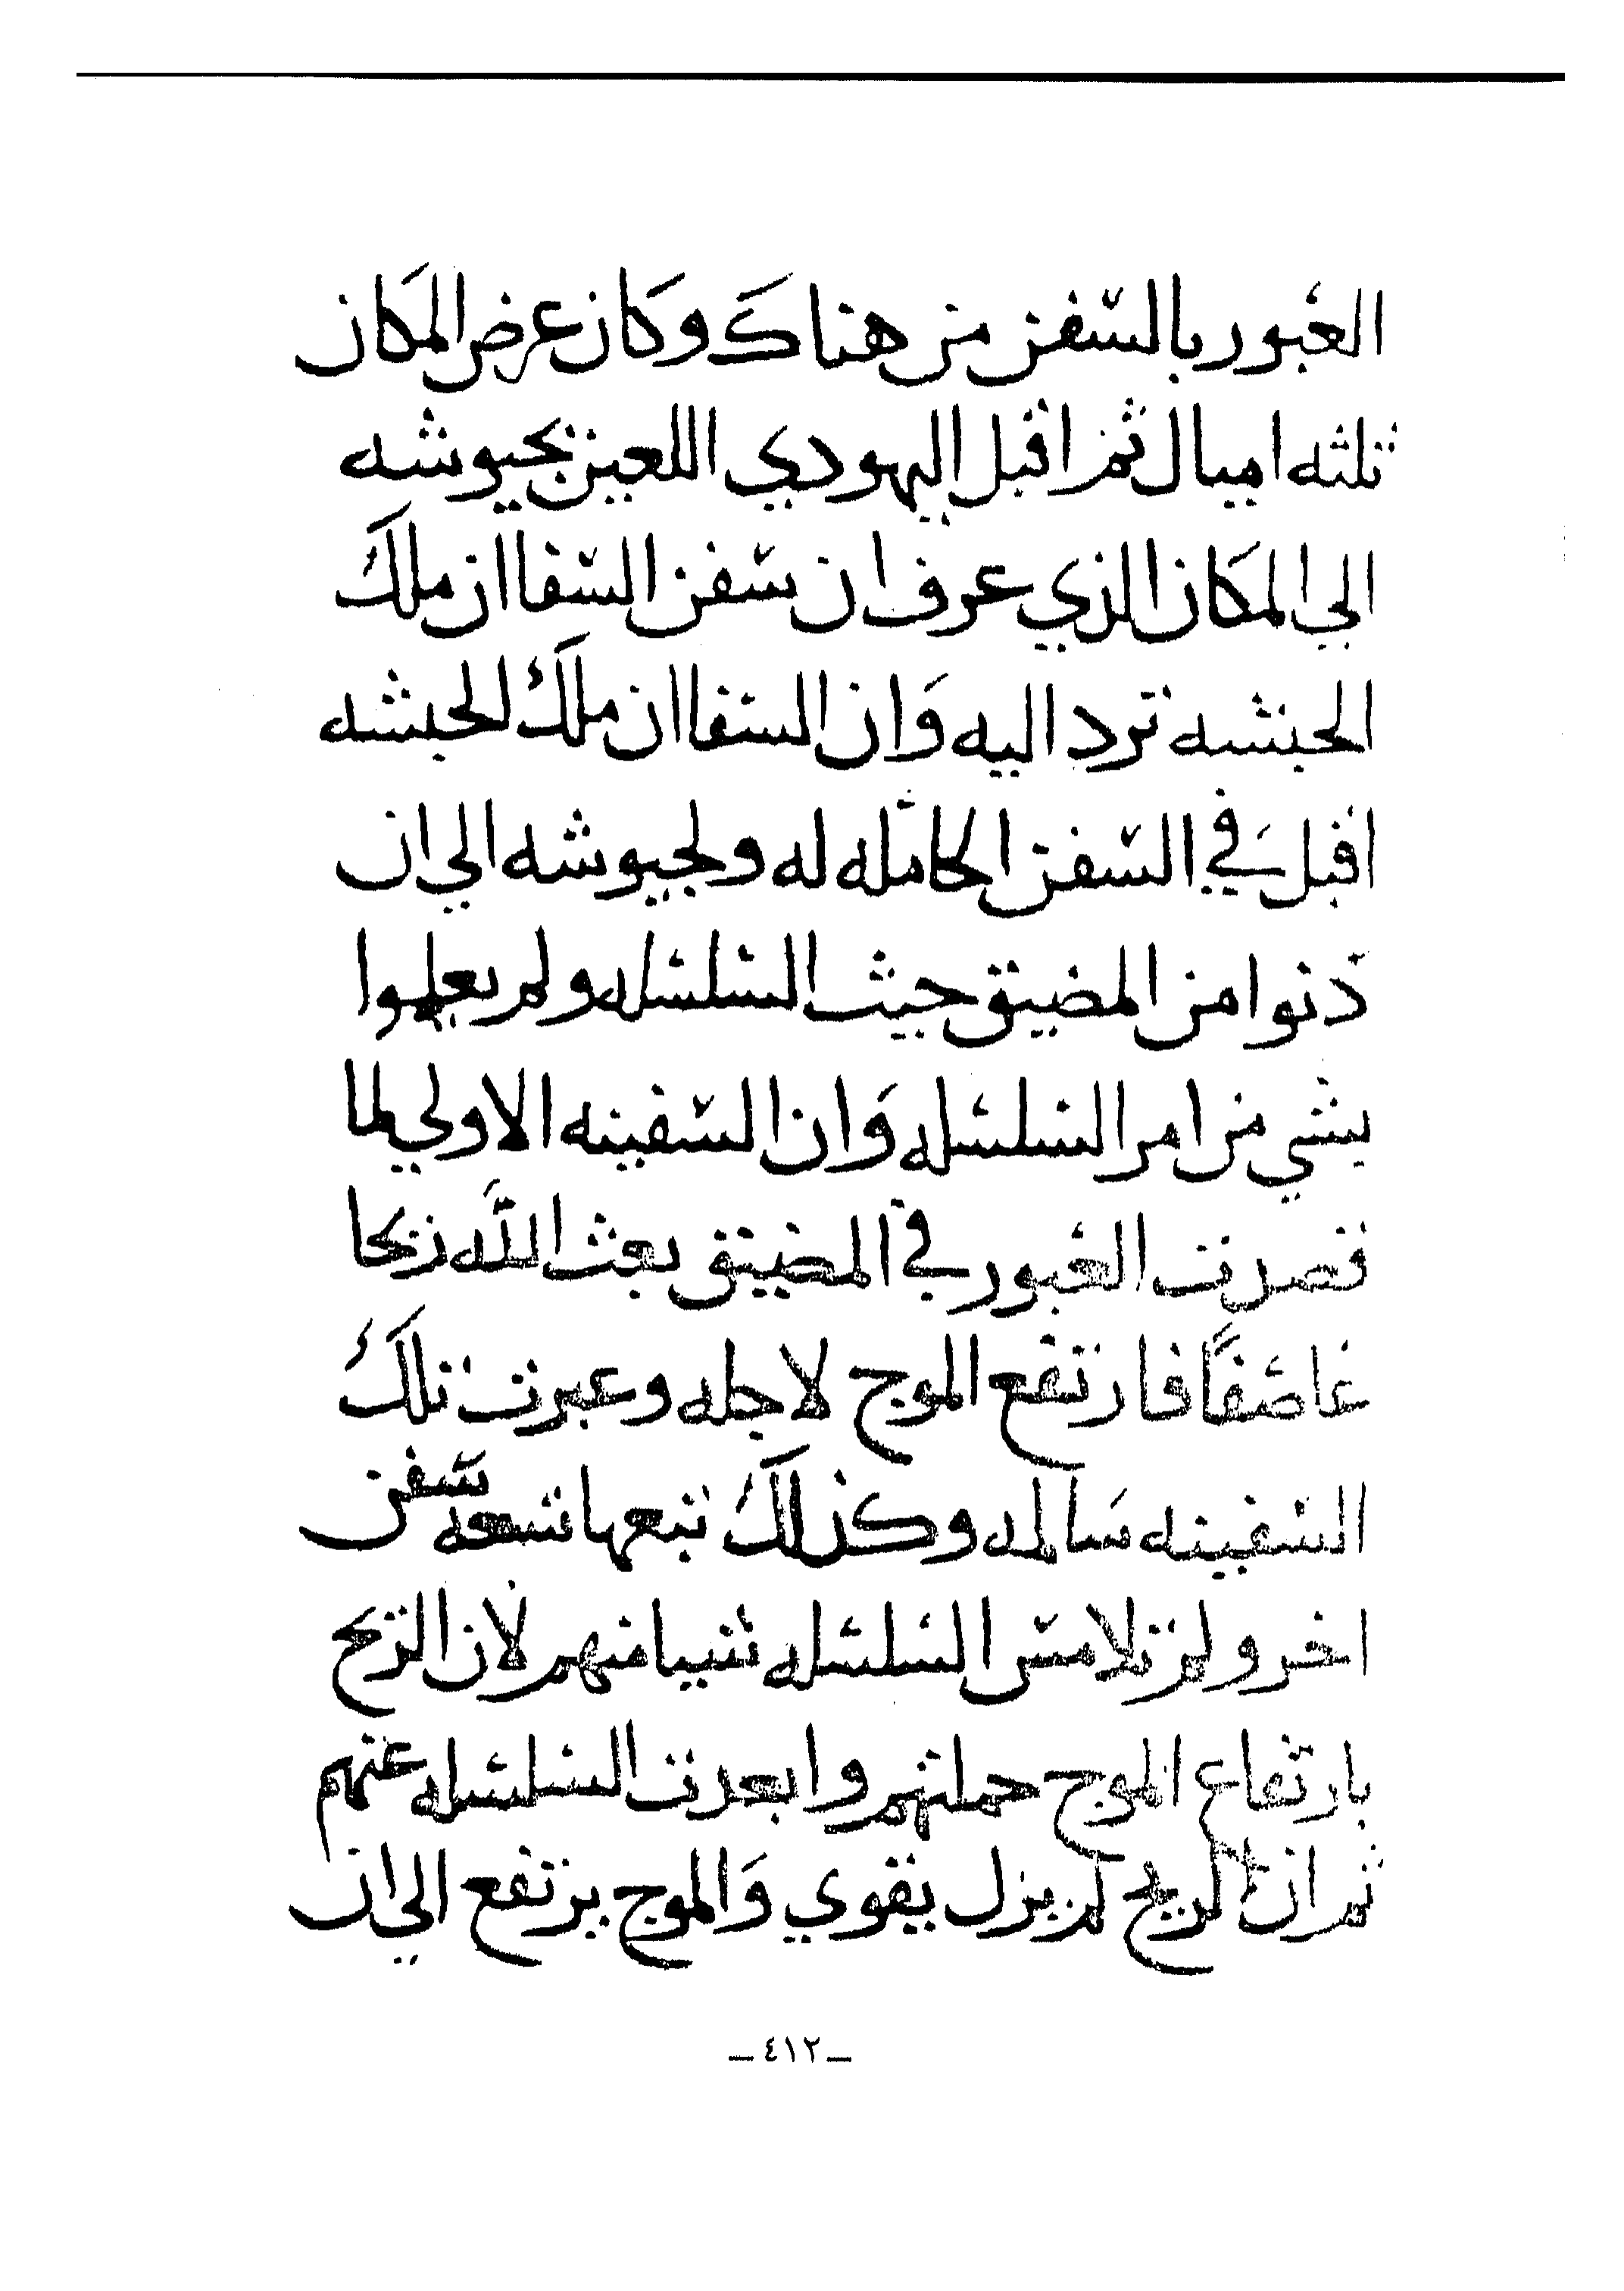 العبور بالسفن من هناك وكان عرض المكان
ثلثه اميال ثم اقبل اليهودي اللعين بجيوشه
الي المكان الذي عرف ان سفن السفاان ملك
الحبشه ترد اليه وان السفاان ملك الحبشه
اقبل في السفن الحامله له ولجيوشه الي ان
دنوا من المضيق حيث السلسله ولم يعلموا
بشي من امر السلسله وان السفينه الاولي لما
قصدت العبور في المضيق بعث الله ريحا
عاصفاً فارتفع الموج لاجله وعبرت تلك
السفينه سالمه وكذلك تبعها تسعه سفن
اخر ولم تلامس السلسله شيا منهم لان الريح
بارتفاع الموج حملتهم وابعدت السلسله عنهم
ثم ان الريح لم يزل يقوي والموج يرتفع الي ان
ـ ٤١٢ ـ